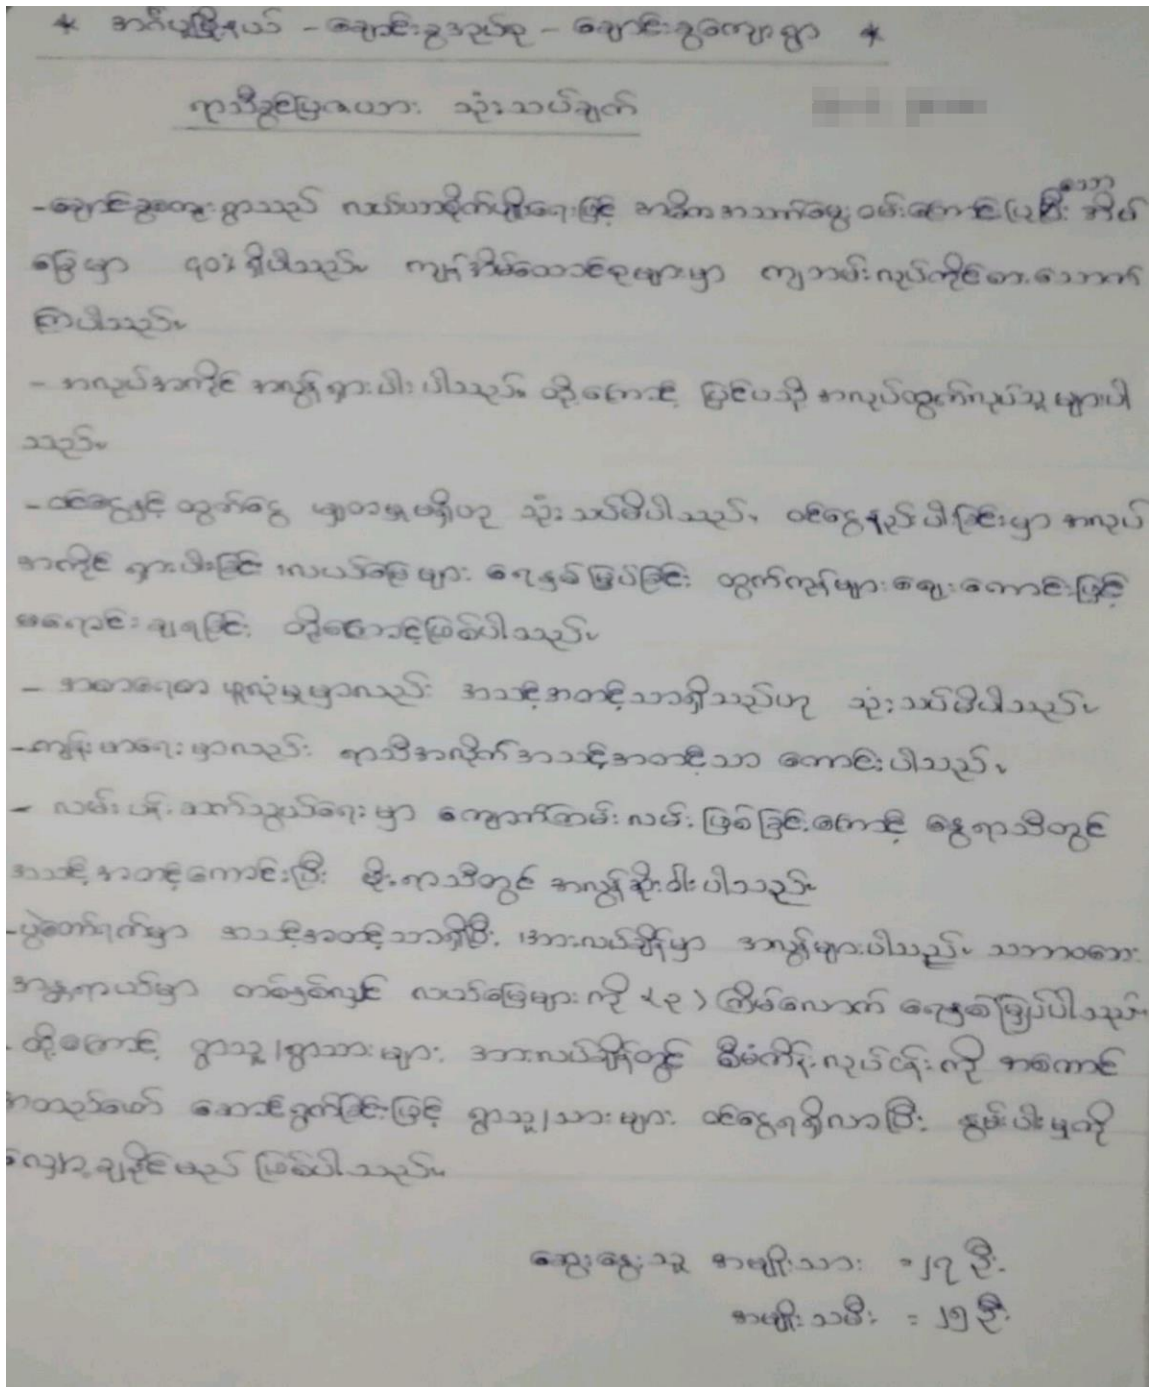 * အင်္ဂပူမြို့နယ် - ချောင်းခွအုပ်စု - ချောင်းခွကျေးရွာ *
ရာသီခွင်ပြဇယား သုံးသပ်ချက်
- ချောင်းခွကျေးရွာသည် လယ်ယာစိုက်ပျိုးရေးဖြင့် အဓိကအသက်မွေးဝမ်းကြောင်းပြုပြီး အိမ်
ခြေမှာ ၄၀% ရှိပါသည်။ ကျန်အိမ်ထောင်စုများမှာ ကျဘမ်းလုပ်ကိုင်စားသောက်
ကြပါသည်။
- အလုပ်အကိုင် အလွန်ရှားပါးပါသည်။ ထို့ကြောင့် ပြင်ပသို့ အလုပ်ထွက်လုပ်သူ များပါ
သည်။
- ဝင်ငွေနှင့် ထွက်ငွေ မျှတမှုမရှိဟု သုံးသပ်မိပါသည်။ ဝင်ငွေနည်းပါးခြင်းမှာ အလုပ်
အကိုင် ရှားပါးခြင်း၊ လယ်မြေများ ရေနစ်မြုပ်ခြင်း ထွက်ကုန်များ ဈေးကောင်းဖြင့်
မရောင်းချရခြင်း တို့ကြောင့်ဖြစ်ပါသည်။
- အစာရေစာ ဖူလုံမှုမှာလည်း အသင့်အတင့်သာရှိသည်ဟု သုံးသပ်မိပါသည်။
- ကျန်းမာရေးမှာလည်း ရာသီအလိုက်အသင့်အတင့်သာ ကောင်းပါသည်။
- လမ်းပန်းဆက်သွယ်ရေးမှာ ကျောက်ကြမ်းလမ်းဖြစ်ခြင်းကြောင့် နွေရာသီတွင်
အသင့်အတင့်ကောင်းပြီး မိုးရာသီတွင် အလွန်ဆိုးဝါးပါသည်။
- ပွဲတော်ရက်မှာ အသင့်အတင့်သာရှိပြီး၊ အားလပ်ချိန်မှာ အလွန်များပါသည်။ သဘာဝဘေး
အန္တရာယ်မှာ တစ်နှစ်လျှင် လယ်မြေများကို (၃) ကြိမ်လောက် ရေနစ်မြှုပ်ပါသည်။
- ထို့ကြောင့် ရွာသူ/ရွာသားများ အားလပ်ချိန်တွင် စီမံကိန်းလုပ်ငန်းကို အကောင်
အထည်ဖော် ဆောင်ရွက်ခြင်းဖြင့် ရွာသူ/သားများ ဝင်ငွေရရှိလာပြီး နွမ်းပါးမှုကို
လျှော့ချနိုင်မည် ဖြစ်ပါသည်။
ဆွေးနွေးသူ အမျိုးသား = ၂၇ ဦး
အမျိုးသမီး = ၂၅ ဦး